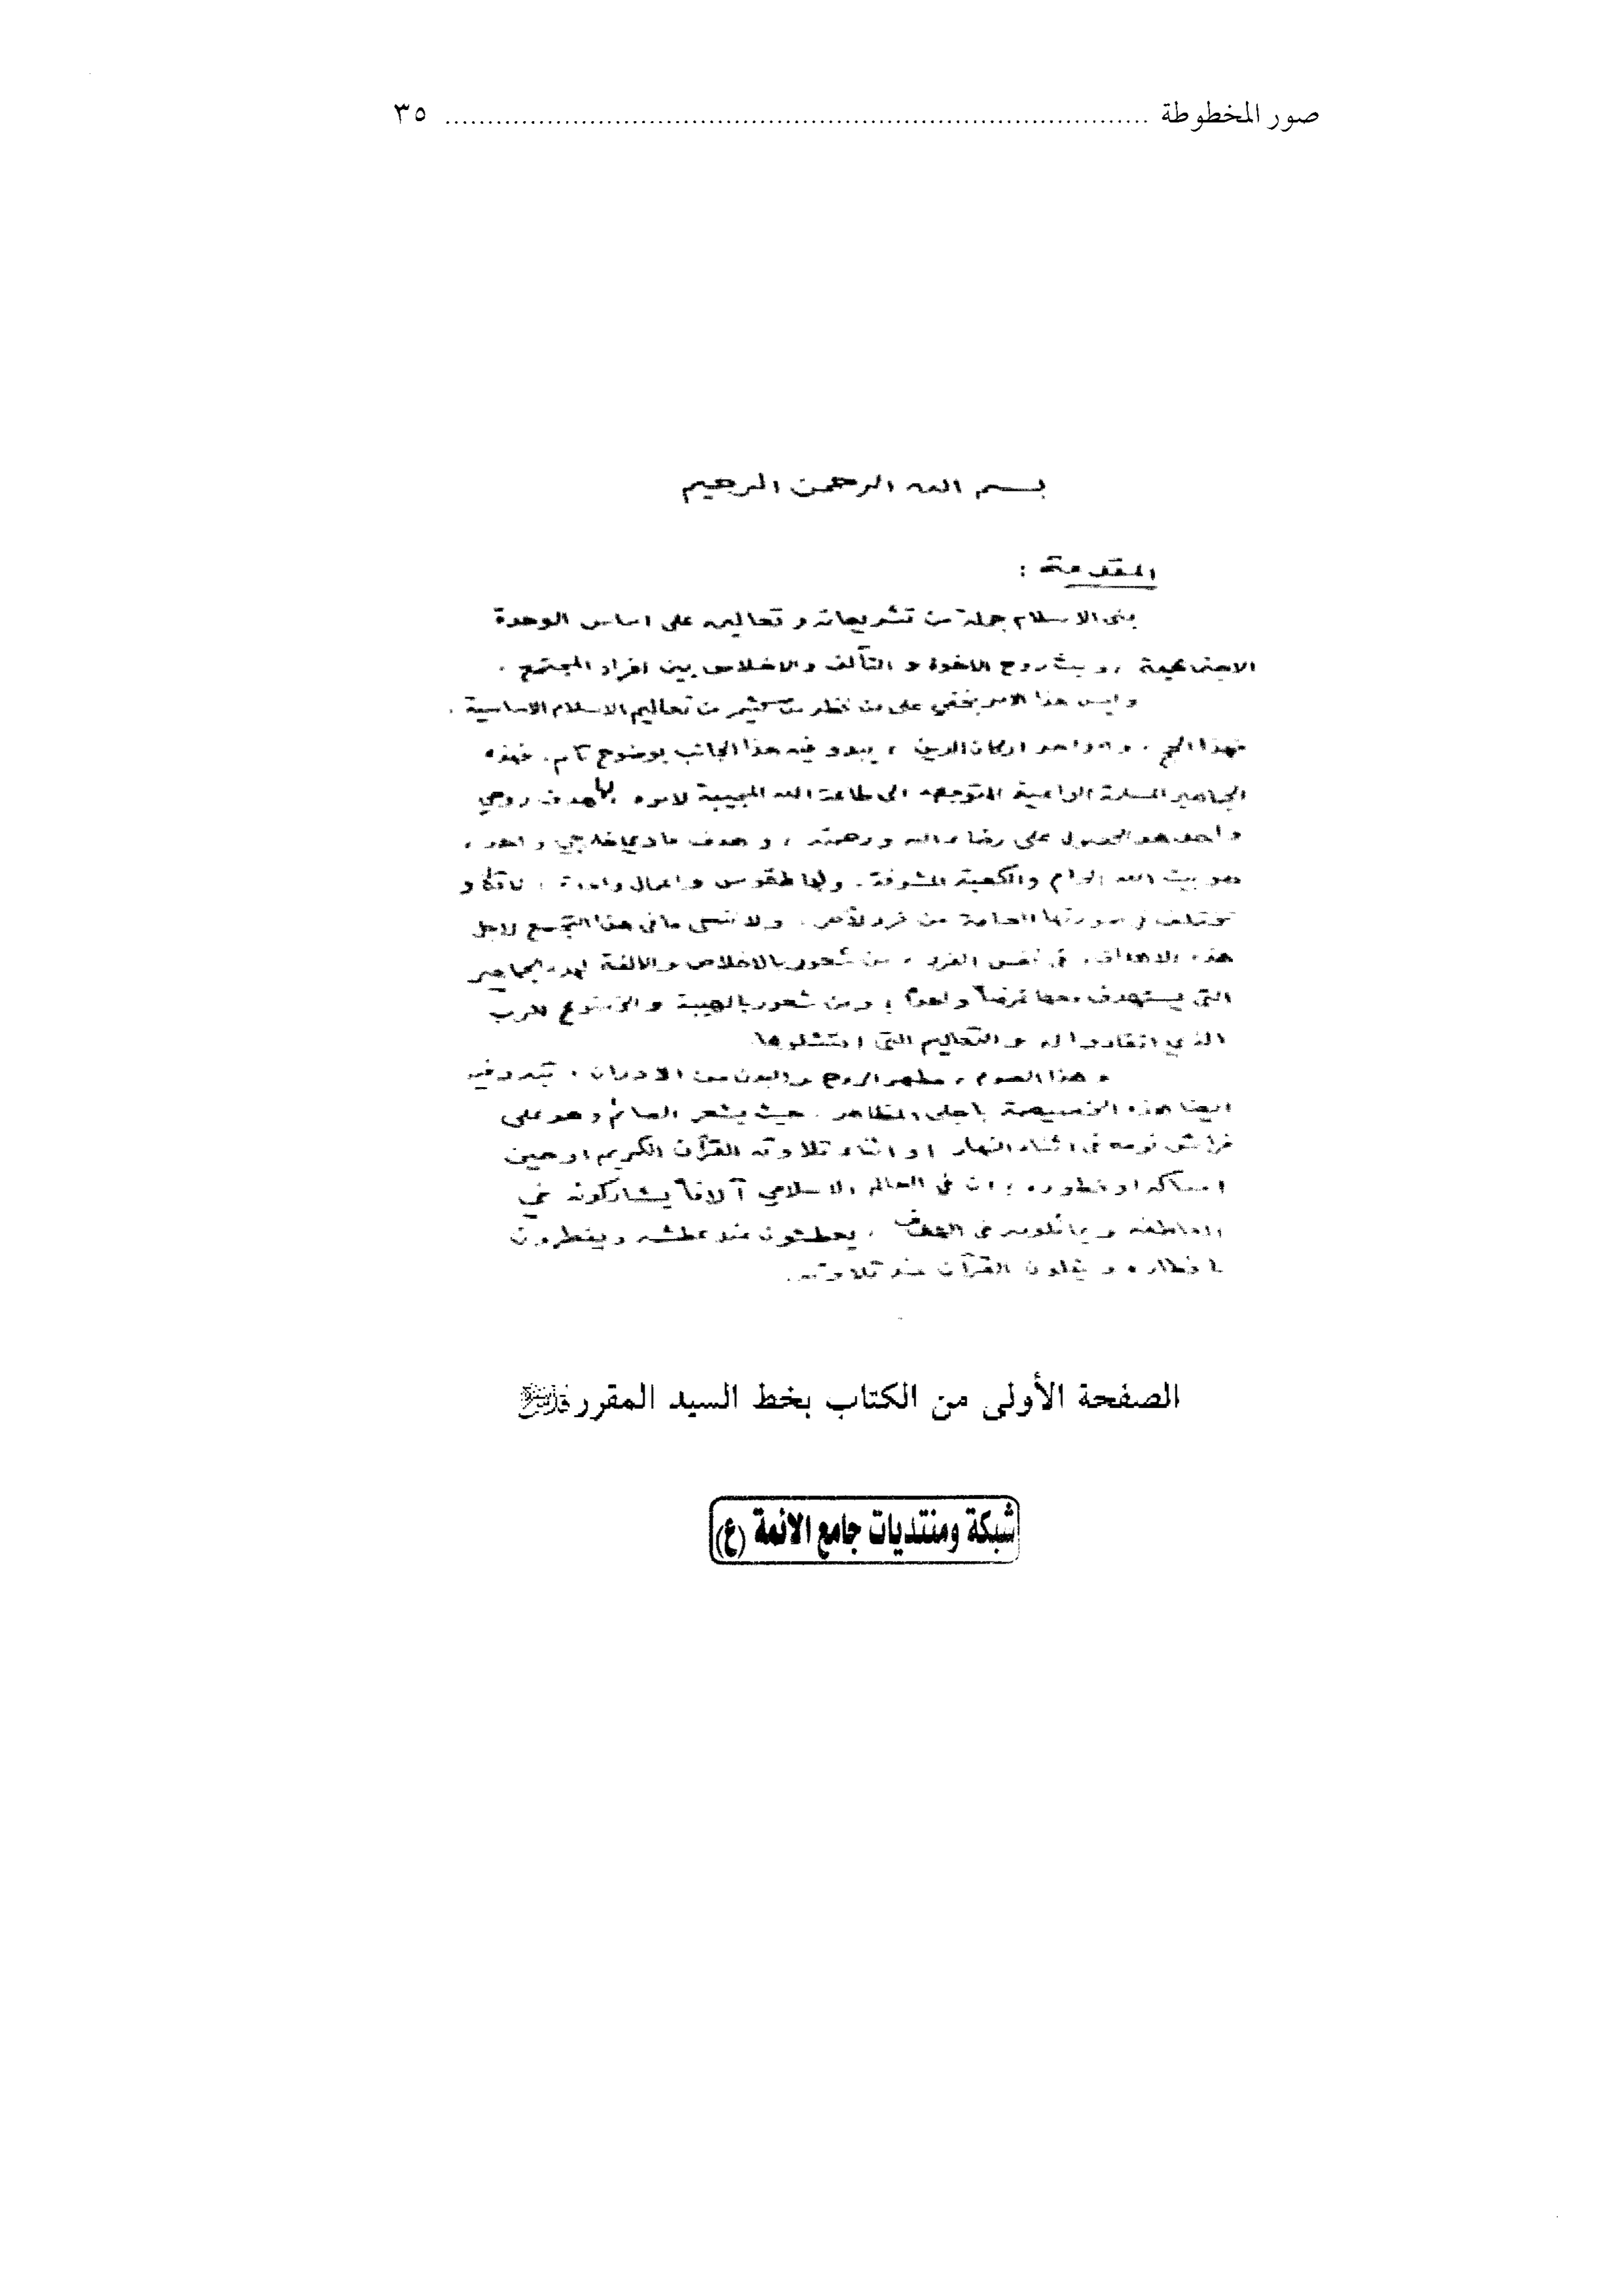 صور المخطوطة ........................................................................ ٣٥
بسم الله الرحمن الرحيم
المقدمة :
بنى الاسلام جملة من تشريعاته و تعاليمه على اساس الوحدة
الاجتماعية ، و بث روح الاخوة و التآلف والاخلاص بين افراد المجتمع .
و ليس هذا الامر بخفي على من نظر كثير من تعاليم الاسلام الاساسية .
فهذا الحج ، و هو احد اركان الدين ، يبدو فيه هذا الجانب بوضوح تام . فهذه
الجماهير المسلمة الواعية المتوجهه الى طاعة الله المجيبة لامره ، لها هدف روحي
واحد هو الحصول على رضاء الله و رحمته ، و هدف مادي خارجي واحد ،
هو بيت الله الحرام والكعبة المشرفة . ولها طقوس و اعمال واحدة ،
تختلف في صورتها العامة من فرد لآخر . ولا ننسى ما في هذا التجمع لاجل
هذه الاهداف ، في نفس الفرد ، من شعور بالاخلاص والالفة لهذه الجماهير
التي يستهدف معها غرضاً واحداً ؛ ومن شعور بالهيبة والخشوع للرب
الذي انقادوا له و التعاليم التي امتثلوها
و هذا الصوم ، مطهر الروح والبدن من الادران ، تبدو فيه
ايضا هذه الخصيصة باجلى المظاهر . حيث يشعر الصائم وهو على
فراش نومه في اثناء النهار او اثناء تلاوته القرآن الكريم او حين
امساكه او فطوره ، بان في العالم الاسلامي آلافاً يشاركونه في
العاطفة و يماثلونه في الهدف ، يعطشون عند عطشه ويفطرون
بافطاره و يتلون القرآن عند تلاوته .
الصفحة الأولى من الكتاب بخط السيد المقرر قدس سره
شبكة ومنتديات جامع الائمة (ع)